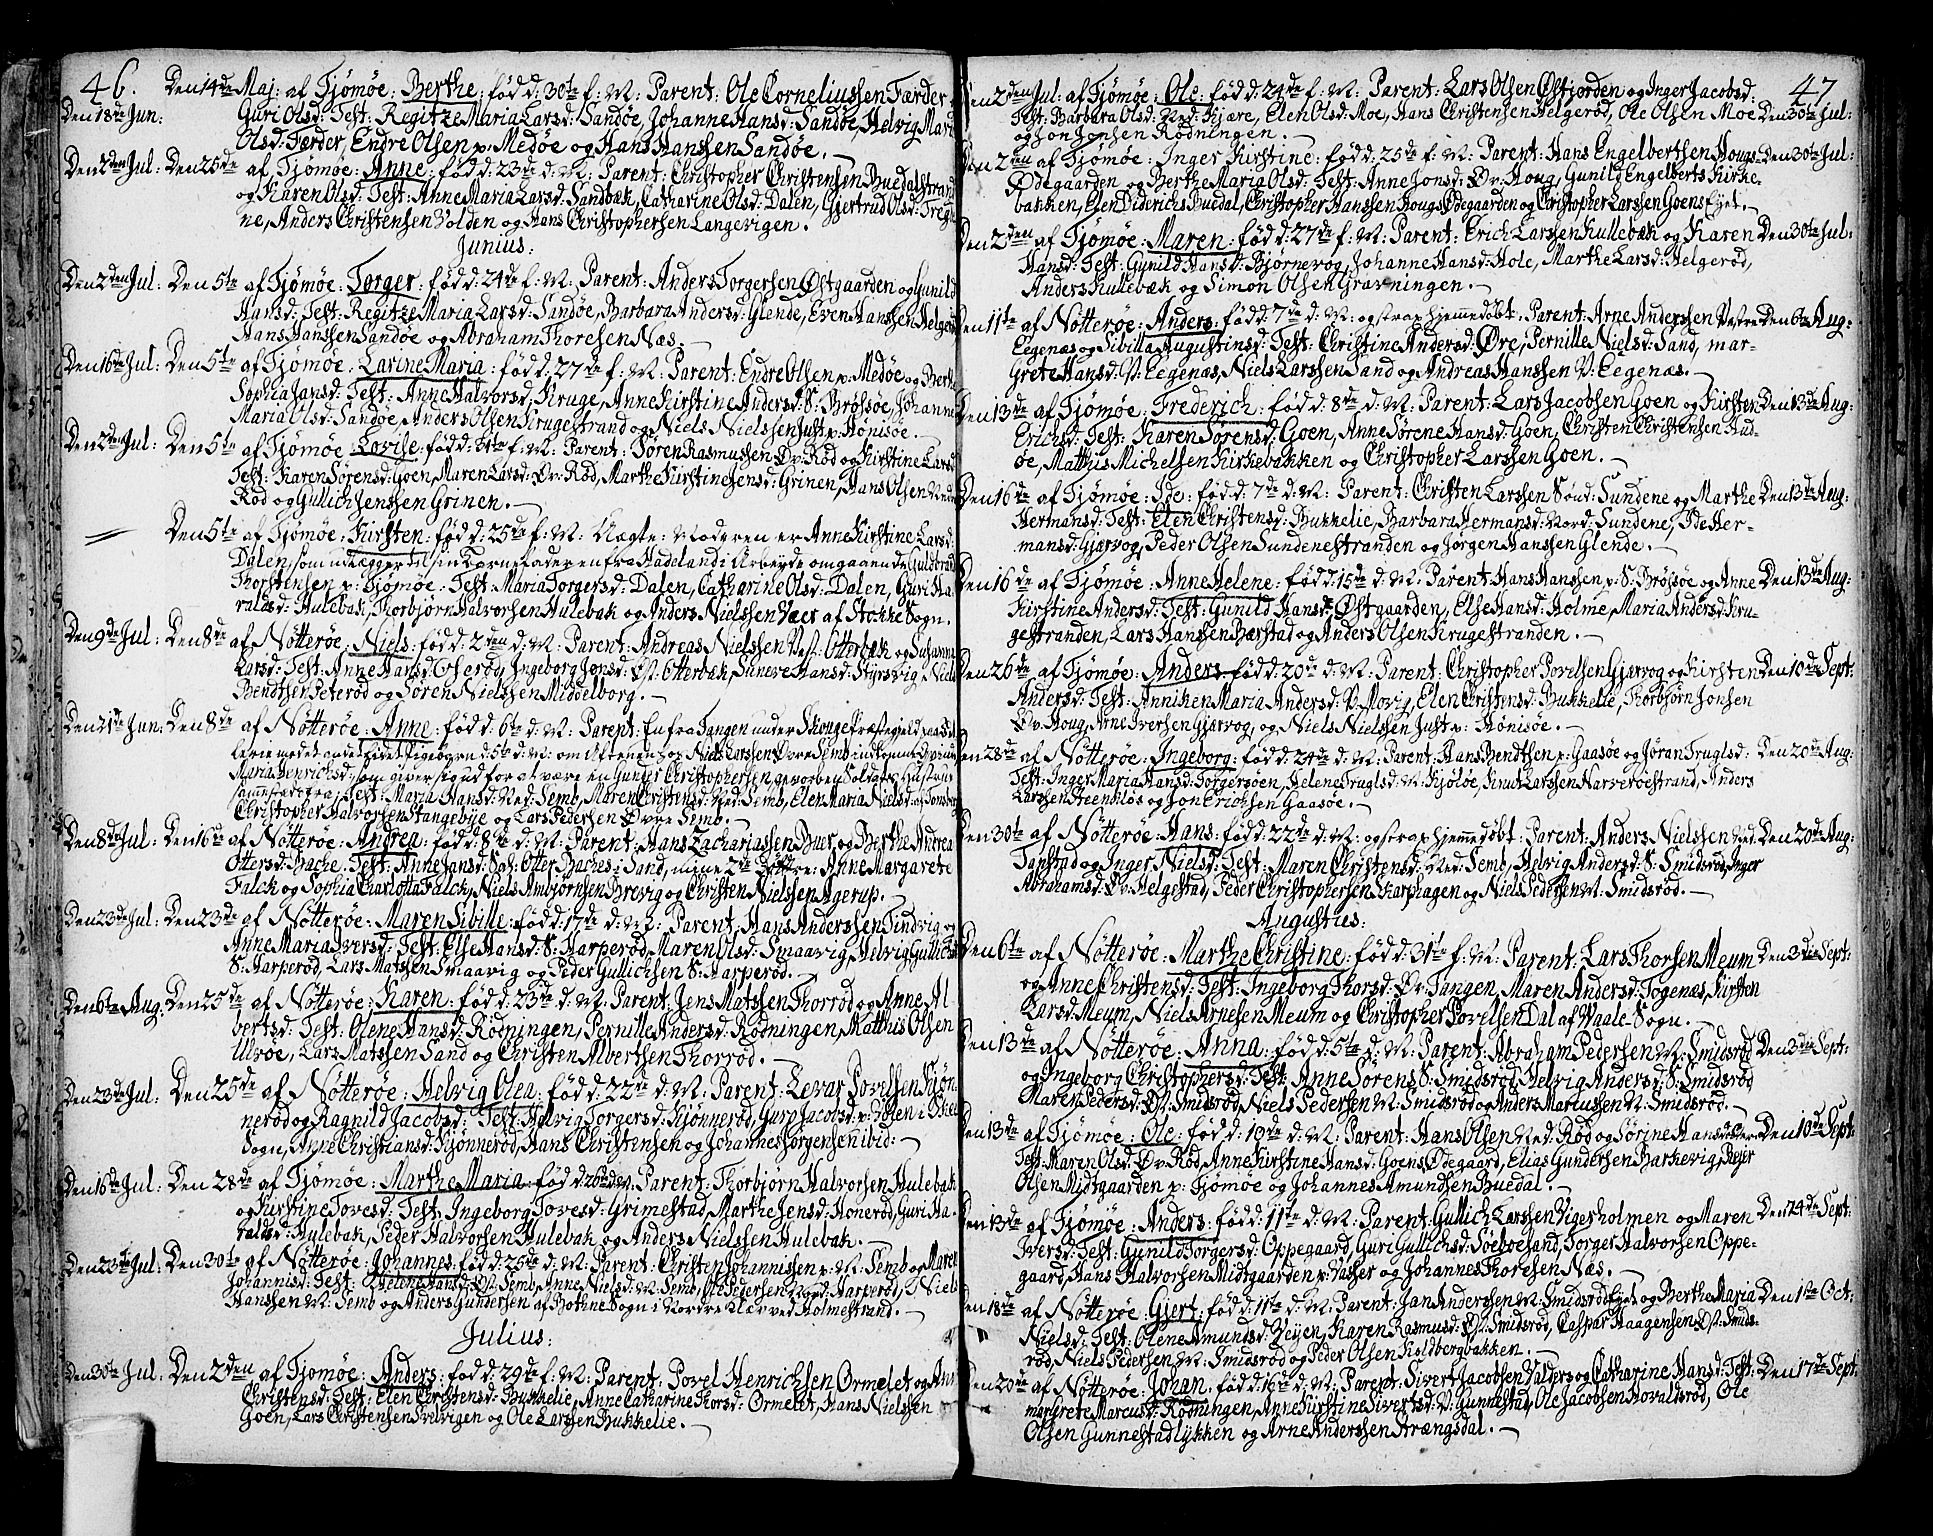 46.
Den 14de Maj: af Tjømøe: Berthe: fød d: 30te f: M: Parent: Ole Corneliussen Færder
Den 18de Jun: Guri Olsd: Test: Regitze Maria Larsd: Sandøe, Johanne Hansd: Sandøe, Helvig Maria
Olsd: Færder, Endre Olsen p: Medøe og Hans Hanssen Sandøe.
Den 2den Jul: Den 25de af Tjømøe: Anne: fød d: 23de d: M: Parent: Christopher Christensen Buedalstrand
og Karen Olsd: Test: Anne Maria Larsd: Sandbæk, Catharine Olsd: Dalen, Gjertrud Olsd: Tregte-
ne, Anders Christensen Volden og Hans Christophersen Langevigen.
Junius:
Den 2den Jul: Den 5te af Tjømøe: Torger: fød d: 24de f: M: Parent: Anders Torgersen Østgaarden og Gunild
Hansd: Test: Regitze Maria Larsd: Sandøe, Barbara Andersd: Glende, Even Hanssen Helgerød
Hans Hanssen Sandøe og Abraham Thoresen Næs.
Den 16de Jul: Den 5te af Tjømøe: Larine Maria: fød d: 27de f: M: Parent: Endre Olsen p: Medøe og Berthe
Sophia Jansd: Test: Anne Halvorsd: Kruge, Anne Kirstine Andersd: S: Brøssøe, Johanne
Maria Olsd: Sandøe, Anders Olsen Krugestrand og Niels Nielssen Just p: Hønisøe.
Den 2den Jul: Den 5te af Tjømøe: Lovise: fød d: 31te f: M: Parent: Søren Rasmussen Øv: Rød og Kirstine Larsd:
Test: Karen Sørensd: Goen, Maren Larsd: Øv: Rød, Marthe Kirstine Jensd: Grinen, Hans Olsen Nedre
Rød og Gullich Jenssen Grinen.
Den 5te af Tjømøe: Kirsten: fød d: 25de f: M: Uægte: Moderen er Anne Kirstine Larsd:
Dalen, som udlægger til sin Barnefader en fra Hadeland i Arbeyde omgaaende Guldbrand
Thorstensen p: Tjømøe: Test: Maria Torgersd: Dalen, Catharine Olsd: Dalen, Guri Ha-
raldsd: Hulebak, Thorbjørn Halvorsen Hulebak og Anders Nielssen Vaer af Stokke Sogn.
Den 9de Jul: Den 8de af Nøtterøe: Niels: fød d: 2den d: M: Parent: Andreas Nielssen Vest: Otterbek og Susanna
Larsd: Test: Anne Hansd: Oserød, Ingeborg Jonsd: Øst: Otterbak, Suneve Hansd: Styrsvig, Niels
Bendtsen Peterød og Søren Nielssen Middelborg.
Den 21de Jun: Den 8de af Nøtterøe: Anne: fød d: 6te d: M: Parent: En fra Tangen under Skouge Præstegield
Niels Larsen Øvre Semb
Maria Henrichsd: som giver sig ud for at være en Christophersen, geworben Soldats Hustrue
Test: Maria Hansd: Ned: Semb, Maren Christensd: Ned: Semb, Elen Maria Nielsd:
Christopher Halvorsen Stangebye og Lars Pedersen Øvre Semb.
Den 8de Jul: Den 16de af Nøtterøe: Andrea: fød d: 8de d: M: Parent: Hans Zachariassen Buer og Berthe Andrea
Ottersd: Bache: Test: Anne Jansd: Sal: Otter Baches i Sand, mine 2de Døttre: Anne Margarete
Falck og Sophia Charlotta Falck, Niels Ambjørnsen Brevig og Christen Nielssen Agerup.
Den 23de Jul: Den 23de af Nøtterøe: Maren Sibille: fød d: 17de d: M: Parent: Hans Anderssen Tindvig og
Anne Maria Iversd: Test: Else Hansd: S: Harperød, Maren Olsd: Smaavig, Helvig Gullichsd:
S: Harperød, Lars Matssen Smaavig og Peder Gullichsen S: Harperød.
Den 6te Aug: Den 25de af Nøtterøe: Karen: fød d: 23de d: M: Parent: Jens Matssen Thorrød og Anne Al-
bertsd: Test: Olene Hansd: Rødningen, Pernille Andersd: Rødningen, Matthis Olsen
Ulvøe, Lars Matssen Sand og Christen Albertsen Thorrød.
Den 23de Jul: Den 25de af Nøtterøe: Helvig Olea: fød d: 22de d: M: Parent: Levar Povelsen Kjøn-
nerød og Ragnild Jacobsd: Test: Helvig Torgersd: Kjønnerød, Guro Jacobsd: p: Holen i
Sogn, Anne Christiansd: Kjønnerød, Hans Christensen og Johannes Jørgensen ibid:
Den 16de Jul: Den 28de af Tjømøe: Marthe Maria: fød d: 26de d: M: Parent: Thorbjørn Halvorsen Hulebak
og Kirstine Tovesd: Test: Ingeborg Tovesd: Grimestad, Marthe Jensd: Honerød, Guri Ha-
raldsd: Hulebak, Peder Halvorsen Hulebak og Anders Nielssen Hulebak.
Den 23de Jul: Den 30te af Nøtterøe: Johannes: fød d: 25de d: M: Parent: Christen Johannissen p: N: Semb og Maren
Johannisd: Test: Helene Hansd: Øst: Semb, Anne Nielsd: N: Semb, Ole Pedersen Nord: Harperød, Niels
Hanssen N: Semb og Anders Gundersen af Botne Sogn i Nordre Næs ved Holmestrand.
Julius:
Den 30te Jul: Den 2den af Tjømøe: Anders: fød d: 29de f: M: Parent: Povel Henrichsen Ormelet og Anne
Christensd: Test: Elen Christensd: Bukkelie, Anne Catharine Thorsd: Ormelet, Hans Nielssen
Goen, Lars Christensen Tvilvigen og Ole Larssen Bukkelie.
47
Den 2den Jul: af Tjømøe: Ole: fød d: 24de f: M: Parent: Lars Olsen Østjorden og Inger Jacobsd:
Test: Barbara Olsd: Ned: Kjære, Elen Olsd: Moe, Hans Christensen Helgerød, Ole Olsen Moe Den 30te Jul:
og Jon Jonsen Rødningen.
Den 2den af Tjømøe: Inger Kirstine: fød d: 25de f: M: Parent: Hans Engelbertsen Hougs- Den 30te Jul:
Ødegaarden og Berthe Maria Olsd: Test: Anne Jonsd: Øv: Houg, Gunild Engelberts Kirke-
bakken, Elen Diderichs Buedal, Christopher Hanssen Hougs Ødegaarden og Christopher Larssen Goens Ejet.
Den 2den af Tjømøe: Maren: fød d: 27de f: M: Parent: Erich Larssen Kullebæk og Karen Den 30te Jul:
Hansd: Test: Gunild Hansd: Bjørnevog, Johanne Hansd: Hole, Marthe Larsd: Helgerød,
Anders Kullebæk og Simon Olsen Gravningen.
Den 11te af Nøtterøe: Anders: fød d: 7de d: M: og strax hjemmedøbt: Parent: Arne Anderssen Vestre Den 6te Aug:
Eegenæs og Sibilla Augustinsd: Test: Christine Andersd: Øre, Pernille Nielsd: Sand, Mar-
grete Hansd: V: Eegenæs, Niels Larssen Sand og Andreas Hanssen V: Eegenæs.
Den 13de af Tjømøe: Frederich: fød d: 8de d: M: Parent: Lars Jacobsen Goen og Kirsten Den 13de Aug:
Erichsd: Test: Karen Sørensd: Goen, Anne Sørene Hansd: Goen, Christen Christensen Hud-
øe, Matthis Michelsen Kirkebakken og Christopher Larssen Goen.
Den 16de af Tjømøe: Ide: fød d: 7de d: M: Parent: Christen Larssen Sønd: Sundene og Marthe Den 13de Aug:
Hermansd: Test: Elen Christensd: Bukkelie, Barbara Hermansd: Nord: Sundene, Ide Her-
mansd: Gjærvog, Peder Olsen Sundenestranden og Jørgen Hanssen Glende.
Den 16de af Tjømøe: Anne Helene: fød d: 15de d: M: Parent: Hans Hanssen p: S: Brøjsøe og Anne Den 13de Aug:
Kirstine Andersd: Test: Gunild Hansd: Østgaarden, Else Hansd: Holme, Maria Andersd: Kru-
gestranden, Lars Hanssen Bærstad og Anders Olsen Krugestranden.
Den 26de af Tjømøe: Anders: fød d: 20de d: M: Parent: Christopher Povelsen Gjærvog og Kirsten Den 10de Sept:
Andersd: Test: Anniken Maria Andersd: V: Movig, Elen Christensd: Bukkelie, Thorbjørn Jonsen
Øv: Houg, Arne Iversen Gjærvog, og Niels Nielssen Just p: Hønisøe.
Den 28de af Nøtterøe: Ingeborg: fød d: 24de d: M: Parent: Hans Bendtsen p: Gaasøe og Jøran Truglsd: Den 20de Aug:
Test: Inger Maria Hansd: Torgersøen, Helene Truglsd: N: Kjøløe, Knut Larssen Narverøestrand, Anders
Larssen Steenkløs og Jon Erichsen Gaasøe.
Den 30te af Nøtterøe: Hans: fød d: 22de d: M: og strax hjemmedøbt: Parent: Anders Nielssen Ned: Den 20de Aug:
Tanstad og Inger Nielsd: Test: Maren Christensd: Ned: Semb, Helvig Andersd: S: Smidsrød, Inger
Abrahamsd: Øv: Helgestad, Peder Christophersen Skarphagen og Niels Pedersen N: Smidsrød.
Augustus:
Den 6te af Nøtterøe: Marthe Christine: fød d: 31te f: M: Parent: Lars Thorsen Meum Den 3die Sept:
og Anne Christensd: Test: Ingeborg Thorsd: Øv: Tangen, Maren Andersd: Togenæs, Kirsten
Larsd: Meum, Niels Arnesen Meum og Christopher Povelsen Dal af Waale Sogn.
Den 13de af Nøtterøe: Anna: fød d: 5te d: M: Parent: Abraham Pedersen N: Smidsrød Den 3die Sept:
og Ingeborg Christophersd: Test: Anne Sørens S: Smidsrød, Helvig Andersd: S: Smidsrød
Maren Pedersd: Øst: Smidsrød, Niels Pedersen N: Smidsrød og Anders Marcussen N: Smidsrød.
Den 13de af Tjømøe: Ole: fød d: 10de d: M: Parent: Hans Olsen Ned: Rød og Sørine Hansd: Den 10de Sept:
Test: Maren Olsd: Øv: Rød, Anne Kirstine Hansd: Goens Ødegaard, Elias Gundersen Barkevig, Bejer
Olsen Midtgaarden p: Tjømøe og Johannes Amundsen Buedal.
Den 13de af Tjømøe: Anders: fød d: 11te d: M: Parent: Gullich Larssen Vigerholmen og Maren Den 24de Sept:
Iversd: Test: Gunild Torgersd: Oppegaard, Guri Gullichsd: Søeboesand, Torger Halvorsen Oppe-
gaard, Hans Halvorsen Midtgaarden p: Vasser og Johannes Thoresen Næs.
Den 18de af Nøtterøe: Gjert: fød d: 11te d: M: Parent: Jan Anderssen N: Smidsrød Ejet og Berthe Maria Den 1ste Oct:
Nielsd: Test: Olene Amundsd: Vejen, Karen Rasmusd: Øst: Smidsrød, Caspar Haagensen Øst: Smids-
rød, Niels Pedersen N: Smidsrød og Peder Olsen Koldbergbakken.
Den 20de af Nøtterøe: Johan: fød d: 16de d: M: Parent: Sivert Jacobsen Valders og Catharine Hansd: Test: Den 17de Sept:
Margrete Marcusd: Rødningen, Anne Kirstine Sivertsd: V: Gunnestad, Ole Jacobsen Hovaldsrød, Ole
Olsen Gunnestadløkken og Arne Anderssen Strængsdal.